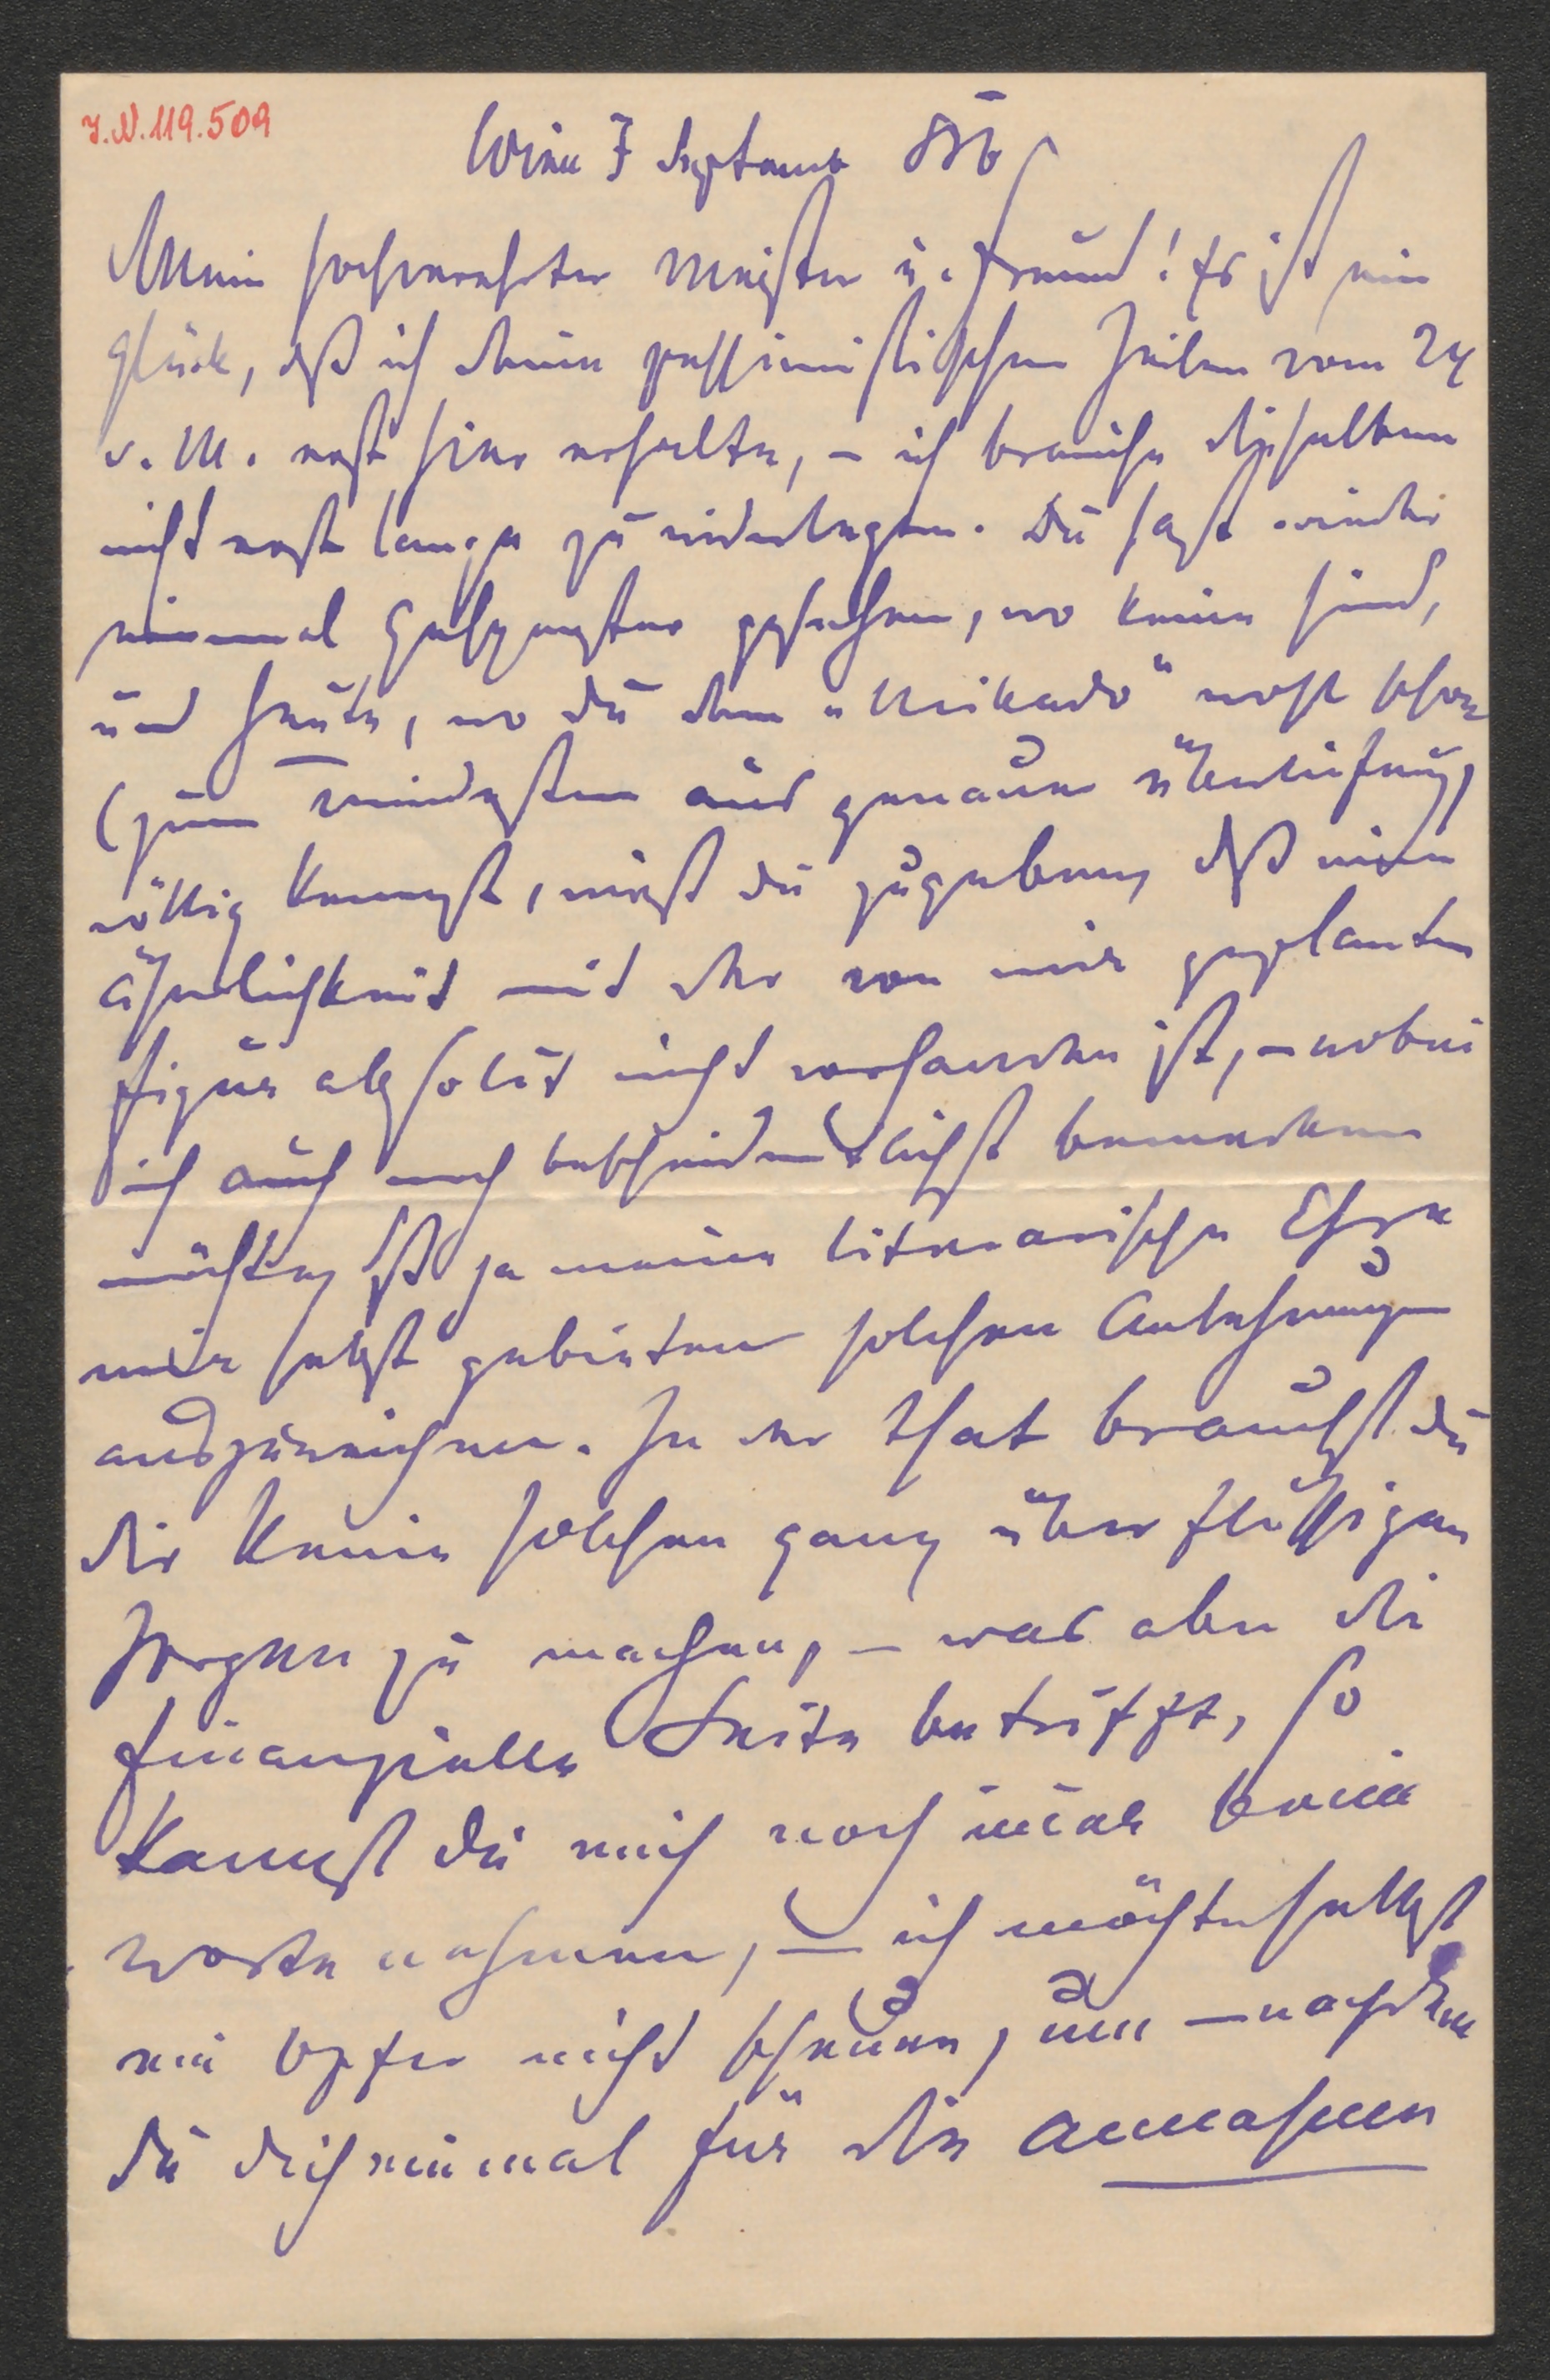 I.N. 119.509
Wien 7 Septemb 886
Mein hochverehrter Meister u. Freund! Es ist ein
Glück, dß ich deine pessimistischen Zeilen vom 24
v. M. erst hier erhalte, – ich brauche dieselben
nicht erst lange zu widerlegen. Du hast wieder
einmal Gespenster gesehen, wo keine sind,
und heute, wo du den "Mikado" wohl schon
(zum mindesten aus genauer Überliefrung)
völlig kennst, wirst du zugeben, dß eine
Ähnlichkeit mit der von mir geplanten
Figur absolut nicht vorhanden ist, – wobei
ich auch noch bescheidentlichst bemerken
möchte, dß ja meine literarische Ehre
mir selbst gebieten solchen Anlehnungen
auszuweichen. In der That brauchst du
dir keine solchen ganz überflüssigen
Sorgen zu machen, – was aber die
finanzielle Seite betrifft, so
kannst du mich noch immer beim
Worte nehmen, – ich möchte selbst
ein Opfer nicht scheuen, um – nachdem
du dich einmal für die